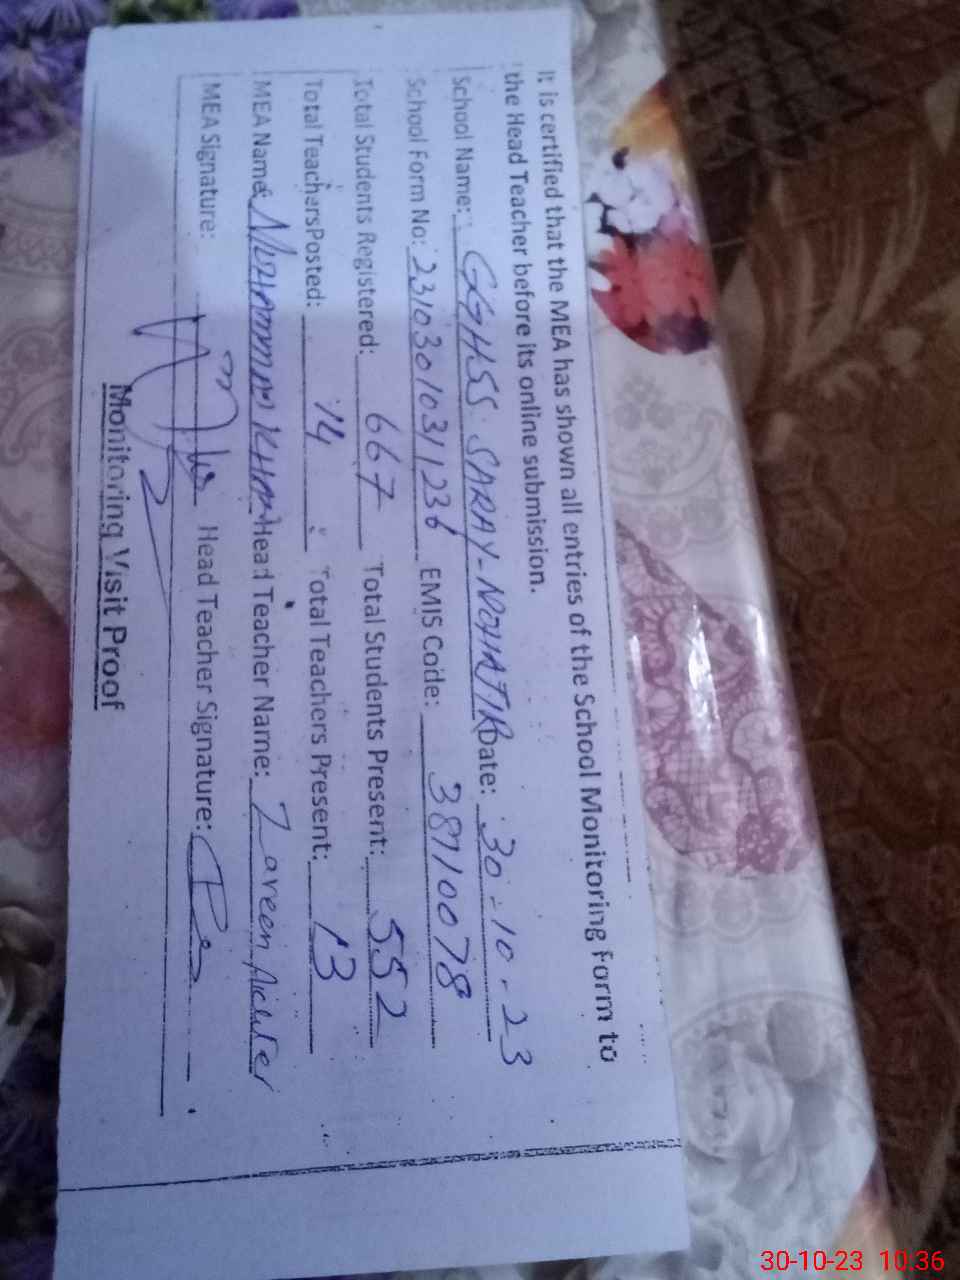 It is certified that the MEA has shown all entries of the School Monitoring Form to
the Head Teacher before its online submission.
School Name: GGHSS SARAY-NOHATIR Date: 30-10-23
School Form No: 2310301031236 EMIS Code: 38710078
Total Students Registered: 667 Total Students Present: 552
Total Teachers Posted: 14 Total Teachers Present: 13
MEA Name: MUHAMMAD KHAN Head Teacher Name: Zareen
MEA Signature: Head Teacher Signature:
Monitoring Visit Proof
30-10-23 10:36